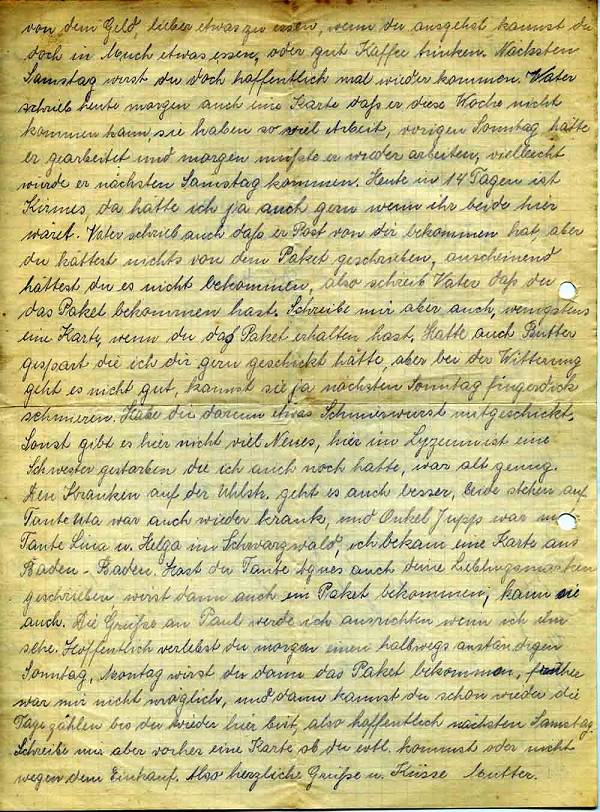 von dem Geld, lieber etwas zu essen, wenn du ausgehst kannst du
doch in Much etwas essen, oder gut Kaffee trinken. Nächsten
Samstag wirst du doch hoffentlich mal wieder kommen. Vater
schrieb heute morgen auch eine Karte daß er diese Woche nicht
kommen kann, sie haben so viel Arbeit, vorigen Sonntag hätte
er gearbeitet und morgen müßte er wieder arbeiten, vielleicht
würde er nächsten Samstag kommen. Heute in 14 Tagen ist
Kirmes, da hätte ich ja auch gern wenn ihr beide hier
waret. Vater schrieb auch daß er Post von dir bekommen hat, aber
du hättest nichts von dem Paket geschrieben, anscheinend
hättest du es nicht bekommen, also schreib Vater daß du
das Paket bekommen hast. Schreibe mir aber auch, wenigstens
eine Karte, wenn du das Paket erhalten hast. Hatte auch Butter
gespart die ich dir gern geschickt hätte, aber bei der Witterung
geht es nicht gut, kannst sie ja nächsten Sonntag fingerdick
schmieren. Habe dir darum etwas Schmierwurst mitgeschickt.
Sonst gibt es hier nicht viel Neues, hier im Lyzeum ist eine
Schwester gestorben die ich auch noch hatte, war alt genug.
Den Kranken auf der Uhlstr. geht es auch besser, beide stehen auf
Tante Uta war auch wieder krank, und Onkel Jupp war mit
Tante Lina u. Helga im Schwarzwald, ich bekam eine Karte aus
Baden-Baden. Hast du Tante Agnes auch deine
geschrieben wirst dann auch ein Paket bekommen, kann sie
auch. Die Grüße an Paul werde ich ausrichten wenn ich ihn
sehe. Hoffentlich verlebst du morgen einen halbwegs anständigen
Sonntag, Montag wirst du dann das Paket bekommen, früher
war mir nicht möglich, und dann kannst du schon wieder die
Tage zählen bis du wieder hier bist, also hoffentlich nächsten Samstag.
Schreibe mir aber vorher eine Karte ob du evtl. kommst oder nicht
wegen dem Einkauf. Also herzliche Grüße u. Küsse Mutter.